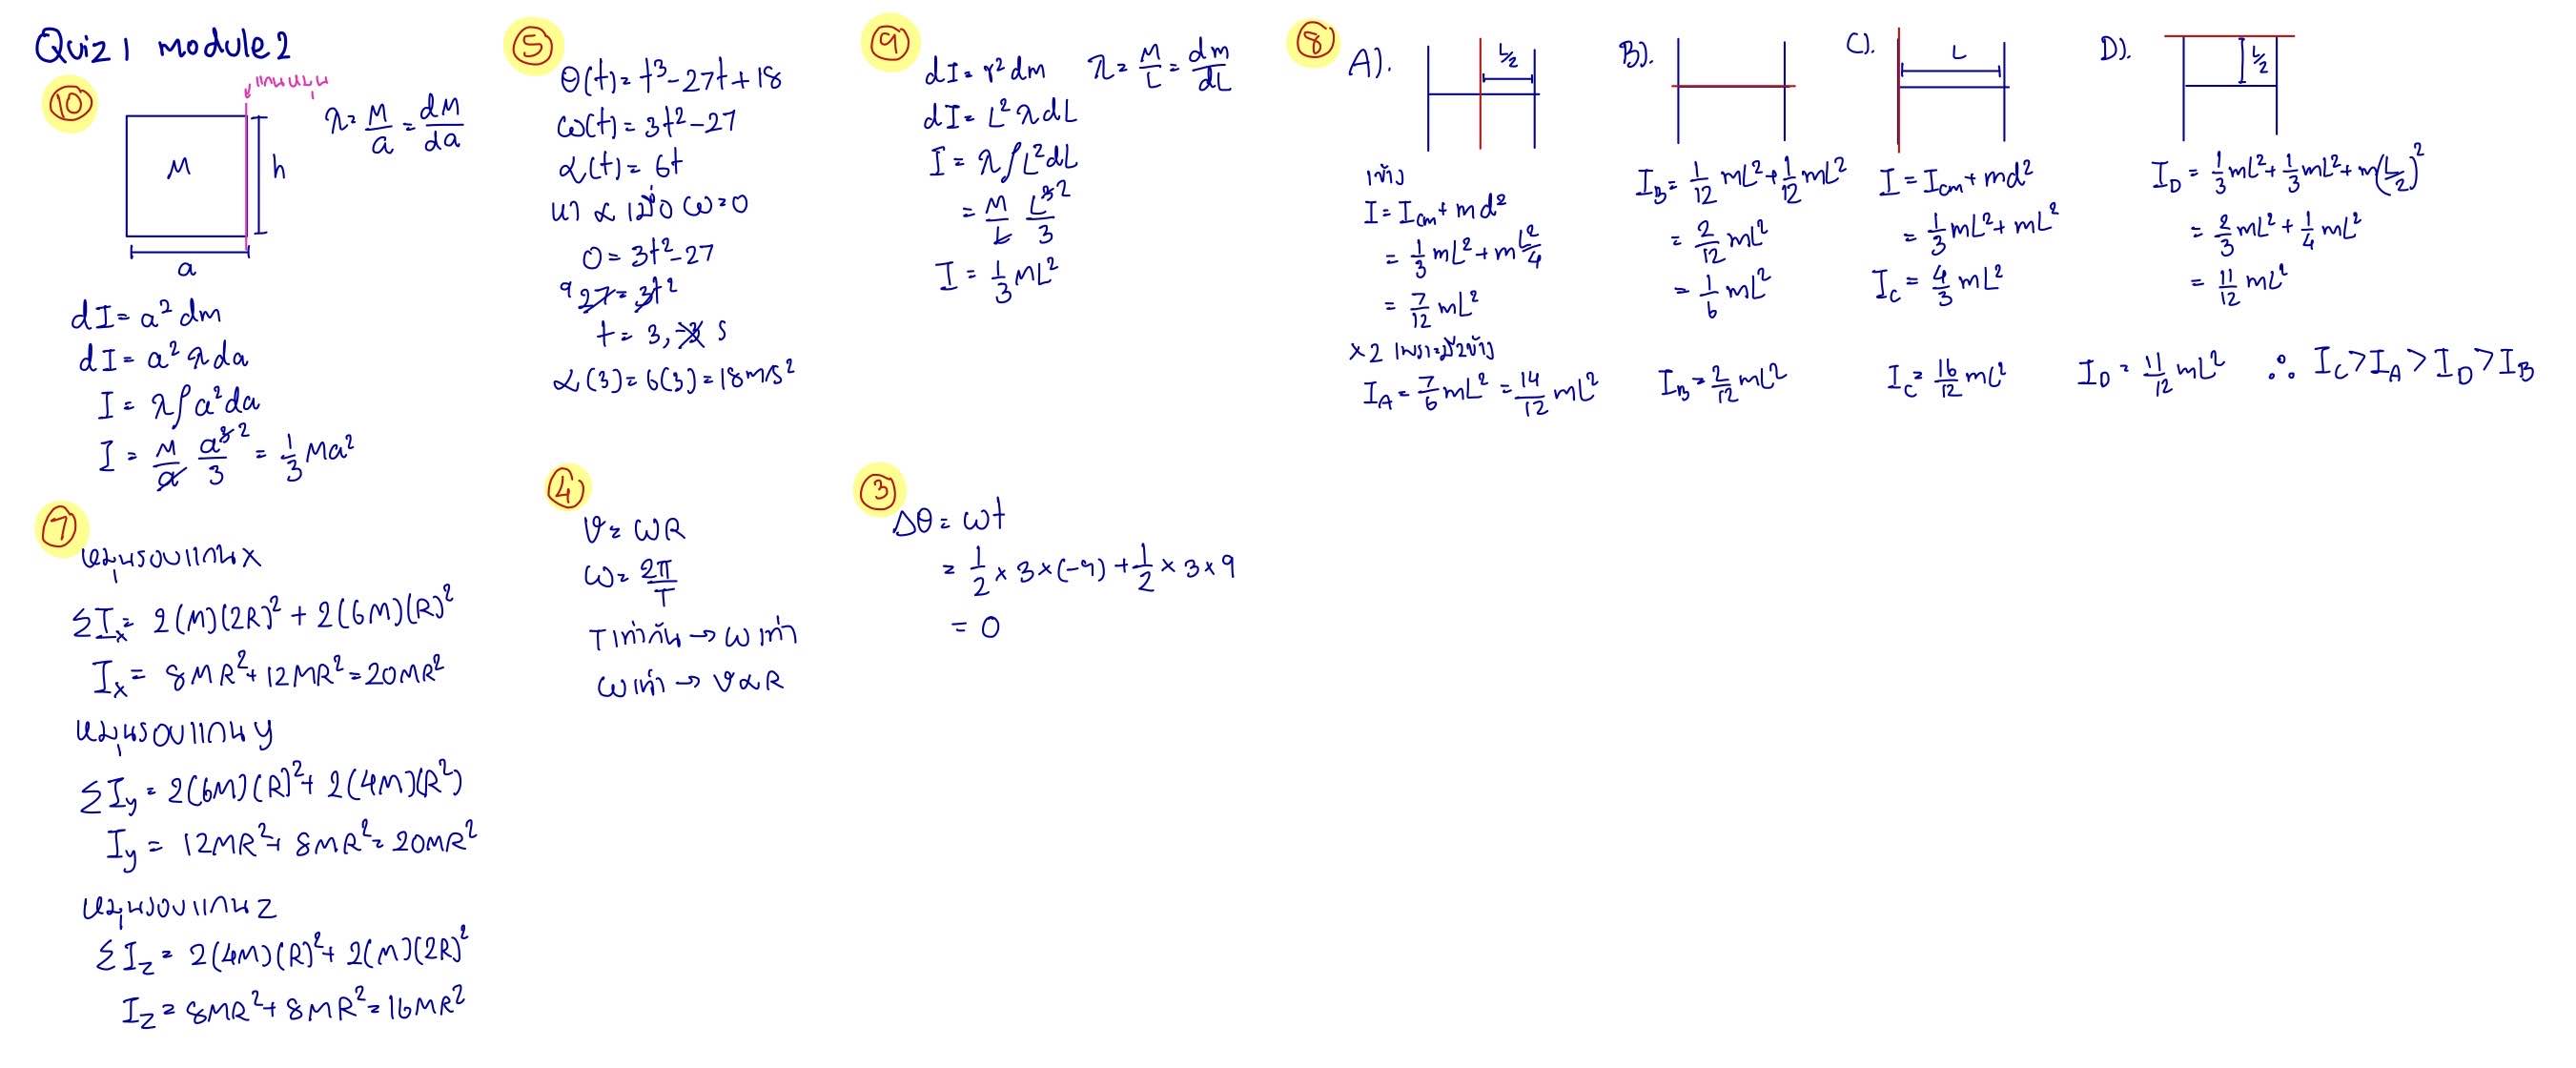 Quiz 1 module 2
⑩
แกนหมุน
λ = M/a = dM/da
M
h
a
dI = a² dm
dI = a² λ da
I = λ∫a² da
I = M/a a³²/3 = 1/3 Ma²
⑦
หมุนรอบแกน x
ΣIx = 2(M)(2R)² + 2(6M)(R)²
Ix = 8MR² + 12MR² = 20MR²
หมุนรอบแกน y
ΣIy = 2(6M)(R)² + 2(4M)(R²)
Iy = 12MR² + 8MR² = 20MR²
หมุนรอบแกน z
ΣIz = 2(4M)(R)² + 2(M)(2R)²
Iz = 8MR² + 8MR² = 16MR²
⑤
θ(t) = t³ - 27t + 18
ω(t) = 3t² - 27
α(t) = 6t
หา α เมื่อ ω = 0
0 = 3t² - 27
9 27 = 3t²
t = 3, -3 s
α(3) = 6(3) = 18 m/s²
④
v = ωR
ω = 2π/T
T เท่ากัน → ω เท่า
ω เท่า → v ∝ R
⑨
dI = r² dm λ = M/L = dm/dL
dI = L² λ dL
I = λ∫L² dL
= M/L L³²/3
I = 1/3 ML²
③
Δθ = ωt
= 1/2 × 3 × (-9) + 1/2 × 3 × 9
= 0
⑧
A).
L/2
I = Icm + md²
= 1/3 mL² + m L²/4
= 7/12 mL²
×2 เพราะมี 2 ข้าง
IA = 7/6 mL² = 14/12 mL²
B).
IB = 1/12 mL² + 1/12 mL²
= 2/12 mL²
= 1/6 mL²
IB = 2/12 mL²
C).
L
I = Icm + md²
= 1/3 mL² + mL²
Ic = 4/3 mL²
Ic = 16/12 mL²
D).
L/2
ID = 1/3 mL² + 1/3 mL² + m(L/2)²
= 2/3 mL² + 1/4 mL²
= 11/12 mL²
ID = 11/12 mL² ∴ IC > IA > ID > IB